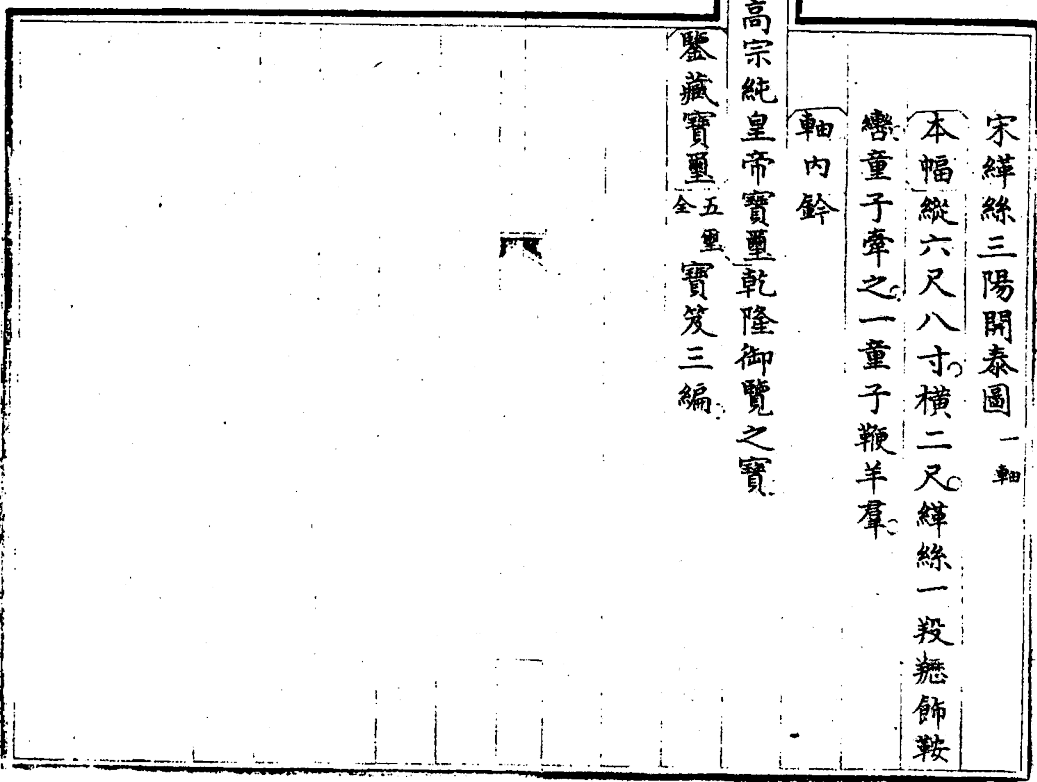 宋緙絲三陽開泰圖一軸
本幅縱六尺八寸。橫二尺。緙絲一羖䍽飾鞍
轡。童子牽之。一童子鞭羊羣。
軸內鈐
高宗純皇帝寶璽乾隆御覽之寶。
鑒藏寶璽五璽全寶笈三編。